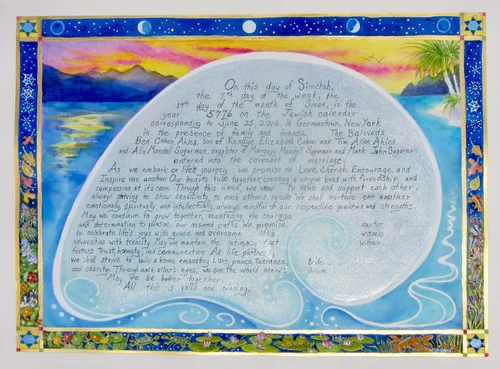 On this day of Simchah,
the 7th day of the week, the
19th day of the month of Sivan, in the
year 5776 on the Jewish calendar
corresponding to June 25, 2016 in Germantown, New York
in the presence of family and friends. The Beloveds
Ben Cohen Ahles, son of Kandye Elizabeth Cohen and Tim Allen Ahles
and Ally Mandel Sugarman, daughter of Margery Mandel Sugarman and Mark John Sugarman,
entered into the covenant of marriage:
As we embark on life's journey we promise to Love, Cherish, Encourage, and
Inspire one another. Our hearts fuse together, creating a unique bond with friendship and
compassion at its core. Through this union, we vow to value and support each other,
always striving to show sensitivity to each other's needs. We shall nurture one another
emotionally, spiritually, and intellectually, always mindful of our respective qualities and strengths.
May we continue to grow together, maintaining the courage
and determination to pursue our dreams. We promise
to celebrate life's joys with grace and overcome life's
adversities with tenacity. May we maintain the intimacy that
fosters trust, honesty, and communication. As life partners
we shall strive to build a home emanating Love, peace, tolerance
and charity. Through each other's eyes, we see the world anew:
May we be better together.
All this is valid and binding.
cantor
witness
witness
bride
groom